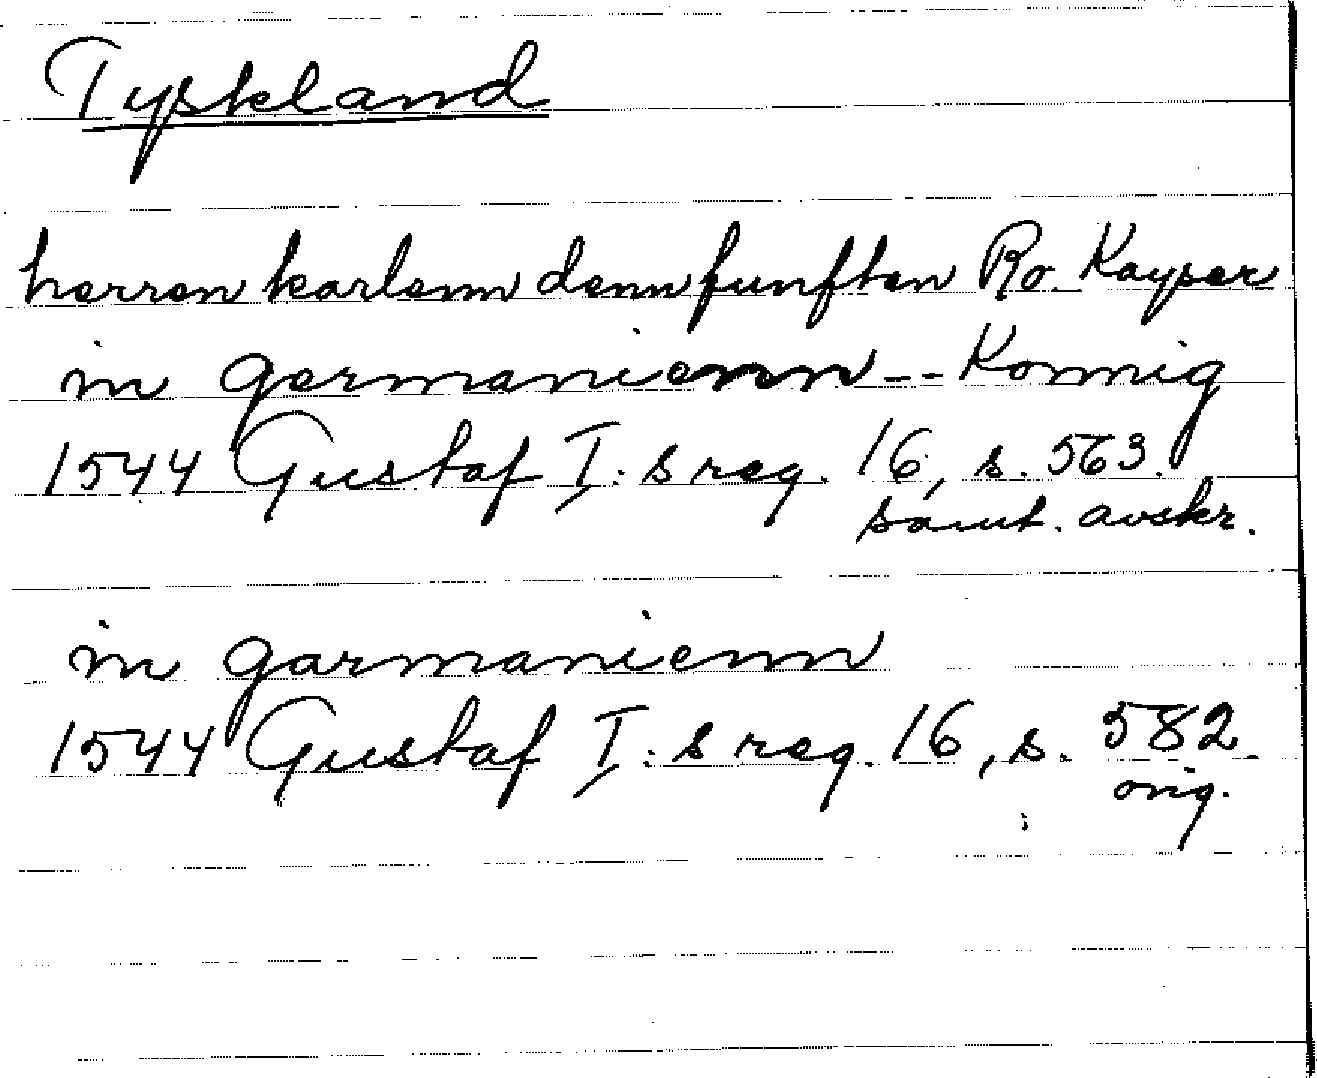 Tyskland
herren karlenn denn funften Ro. Kayser
in germanienn -- Konnig
1544 Gustaf I:s reg. 16, s. 563.
samt. avskr.
in germanienn
1544 Gustaf I:s reg. 16, s. 582.
orig.